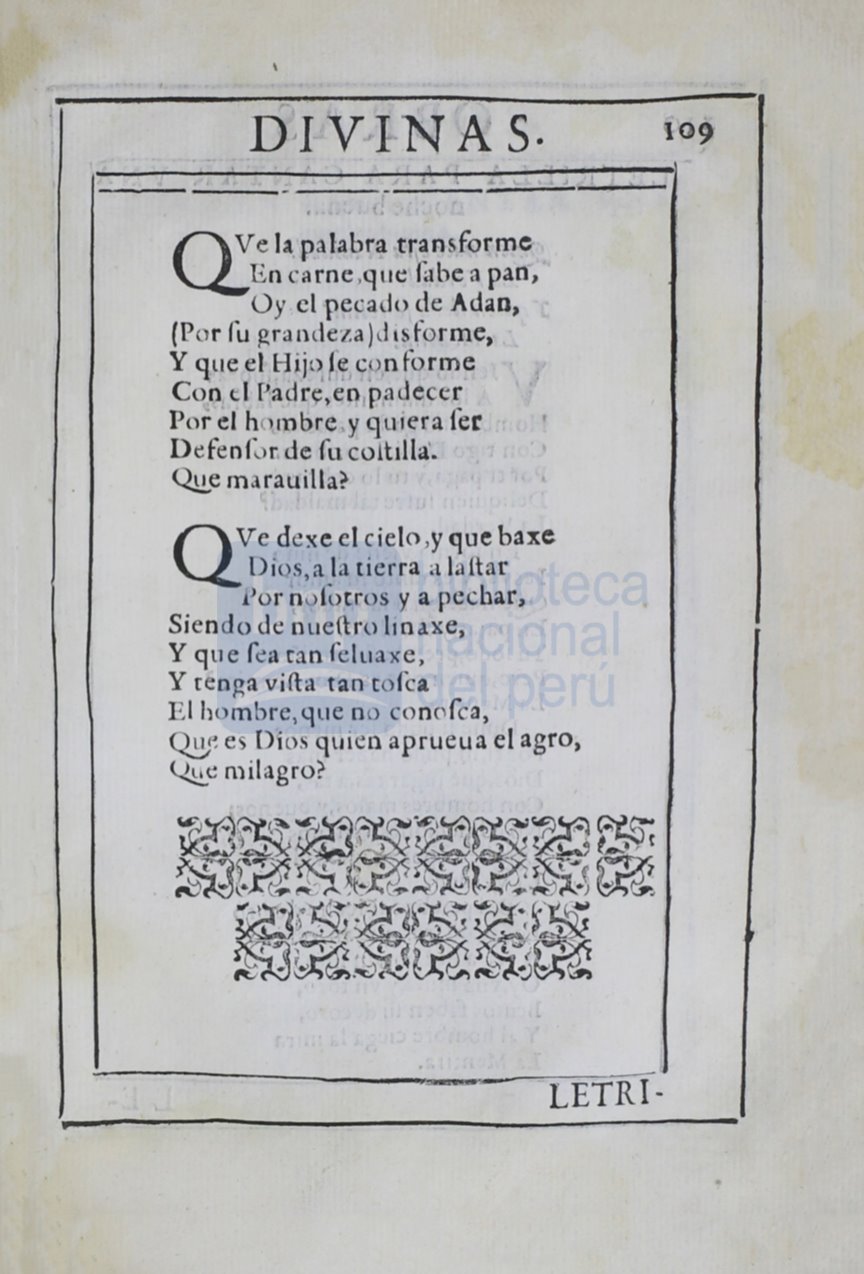 DIVINAS.
109
QVe la palabra transforme
En carne, que ſabe a pan,
Oy el pecado de Adan,
(Por ſu grandeza) disforme,
Y que el Hijo ſe conforme
Con el Padre, en padecer
Por el hombre y quiera ſer
Defenſor de ſu coſtilla.
Que marauilla?
QVe dexe el cielo, y que baxe
Dios, a la tierra a laſtar
Por noſotros y a pechar,
Siendo de nueſtro linaxe,
Y que ſea tan ſeluaxe,
Y tenga viſta tan toſca
El hombre, que no conoſca,
Que es Dios quien aprueua el agro,
Que milagro?
LETRI-
biblioteca
nacional
del perú